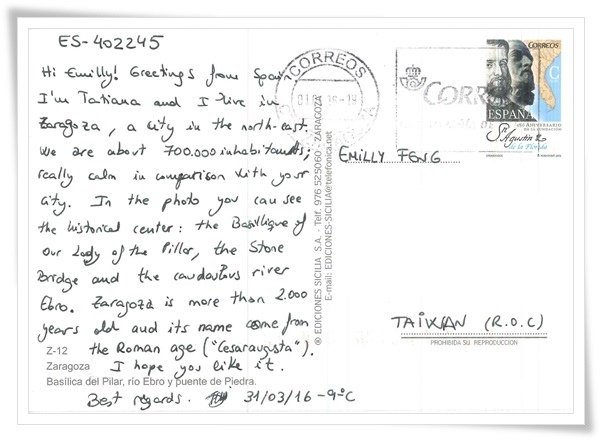 ES-402245
Hi Emilly! Greetings from Spain.
I'm Tatiana and I live in
Zaragoza, a city in the north-east.
We are about 700.000 inhabitants;
really calm in comparison with your
city. In the photo you can see
the historical center: the Basillique of
our Lady of the Pillar, the Stone
Bridge and the caudalous river
Ebro. Zaragoza is more than 2.000
years old and its name come from
the Roman age ("Cesaraugusta").
I hope you like it.
Best regards. 31/03/16 -9ºC
Z-12
Zaragoza
Basílica del Pilar, río Ebro y puente de Piedra.
® EDICIONES SICILIA S.A. - Telf. 976 525060 - ZARAGOZA
E-mail: EDICIONES-SICILIA@telefonica.net
CORREOS
ZARAGOZA
CORREOS
CORREOS
ESPAÑA
ANIVERSARIO
DE LA FUNDACIÓN
Sn Agustín
de la Florida
EMILLY FENG
TAIWAN (R.O.C)
PROHIBIDA SU REPRODUCCION